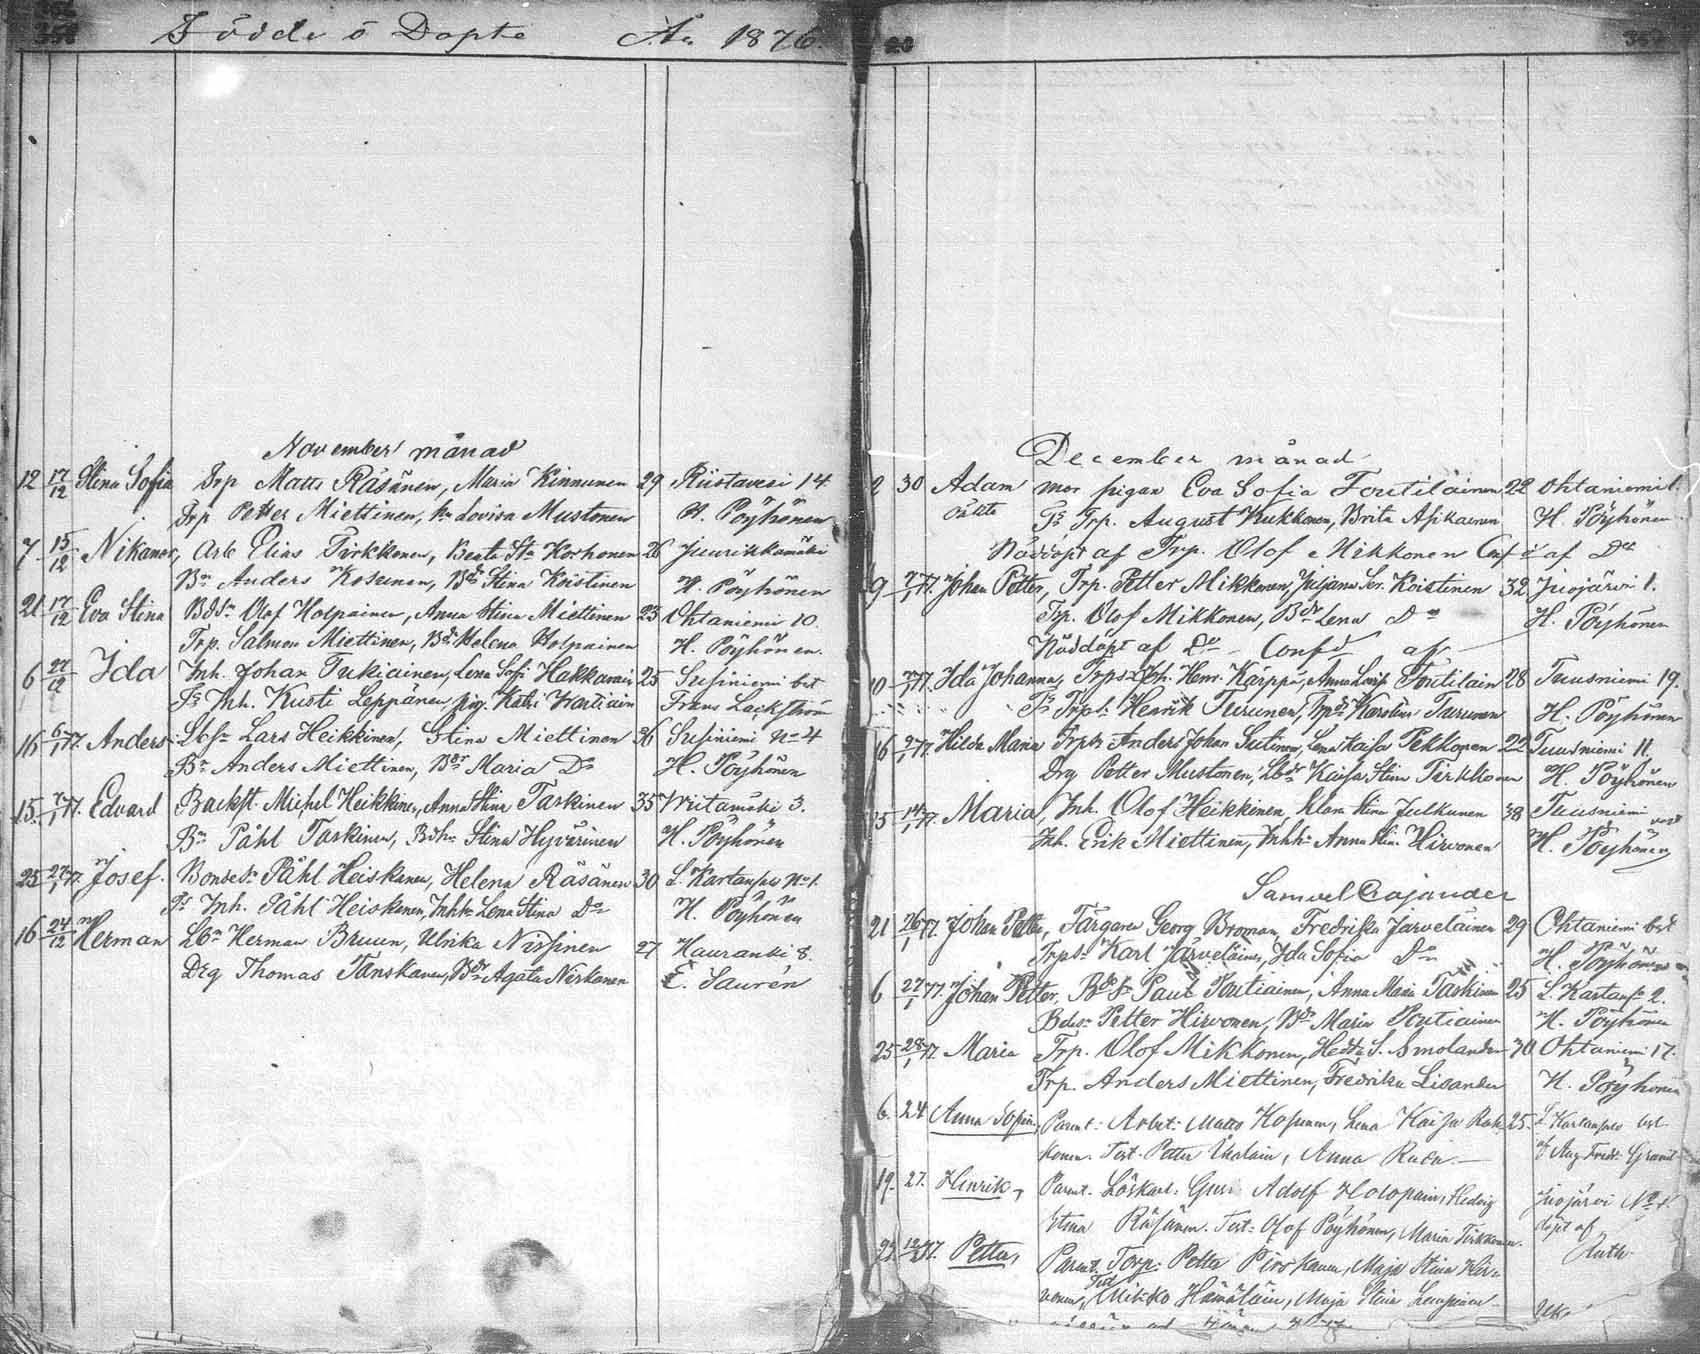 Födde o Döpte År 1876.
November månad
12 17/12 Stina Sofia Trp Matts Räsänen, Maria Kinnunen 29 Riistavesi 14
Trp Petter Miettinen, Lovisa Mustonen H. Pöyhönen
7 15/12 Nikanor, Arb Elias Tirkkonen, Beata Sta Korhonen 26 Juurikkamäki
Bn Anders Kosunen, Bdr Stina Koistinen H. Pöyhönen
21 17/12 Eva Stina Bdsn Olof Holpainen, Anna Stina Miettinen 23 Ohtaniemi 10.
Trp. Salmon Miettinen, Bdr Helena Holpainen H. Pöyhönen.
6 27/12 Ida Inh. Johan Tukiainen, Lena Sofi Hakkarain 25 Susiniemi bst
Inh. Kusti Leppänen, pig. Katri Frans Lackström
16 6/1 77. Anders Lbsn Lars Heikkinen, Stina Miettinen 26 Susiniemi No 4
Bn Anders Miettinen, Bdr Maria Do H. Pöyhönen
15. 7/1 77. Edvard Backst. Michel Heikkinen, Anna Stina Taskinen 35 3.
Bn Påhl Taskinen, Bdhu Stina Hyvärinen H. Pöyhönen
25 27/1 77. Josef. Bondesn Påhl Heiskanen, Helena Räsänen 30 L. Kartansalo No 1.
Inh. Påhl Heiskanen, Inhh Lena Stina Do H. Pöyhönen
16 24/12 Herman Lbn Herman Bruun, Ulrika Nissinen 27 8.
Drg Thomas Tanskanen, Bdr Agata Niskanen E. Saurén
20
December månad
2 30 Adam mor pigan Eva Sofia Toutilainen 22 Ohtaniemi
oäkta Trp. August Kukkonen, Brita Asikainen H. Pöyhönen
Nöddöpt af Trp. Olof Mikkonen Conf af Do
9 7/1 77. Johan Petter, Trp. Petter Mikkonen, Juljana Ser. Koistinen 32 Juojärvi 1.
Trp. Olof Mikkonen, Bdr Lena Do H. Pöyhönen
Nöddöpt af Do Conf af
10 7/1 77. Ida Johanna, Trps Joh. Henr. Karppi, Anna Lovis Toutilain 28 Tuusniemi 19.
Trp. Henrik Turunen, Trpdr Karolina Turunen H. Pöyhönen
16 77 Hilda Maria Trps Anders Johan Sutinen, Lena Kaisa Pekkonen 22 Tuusniemi 11.
Drg Petter Mustonen, Lbdr Kaisa Stina Tirkkonen H. Pöyhönen
5 14/1 77. Maria, Inh. Olof Heikkinen, Stina Julkunen 38 Tuusniemi
Inh. Erik Miettinen, Inhh Anna Hirvonen H. Pöyhönen
Samuel Cajander
21 26/1 77. Johan Petter, Färgaren Georg Broman, Fredrika Jarveläinen 29 Ohtaniemi bst
Trps Karl Järveläinen, Ida Sofia Do H. Pöyhönen
6 27/1 77. Johan Petter, Bdsn Paul Toutiainen, Anna Maria Taskinen 25 L. Kartansa 2.
Bdsn Petter Hirvonen, Bdr Maria Toutiainen H. Pöyhönen
25 28/1 77. Maria Trp. Olof Mikkonen, Hedda S. Smolander 30 Ohtaniemi 17.
Trp. Anders Miettinen, Fredrika Lisander H. Pöyhönen
6. 24 Anna Sofia, Parent: Arbet: Matts Kosunen, Lena Kaisa Rak- 25. L. Kartansalo bst
konen. Test. Petter, Anna af Aug. Fredr. Granit
19. 27. Henrik, Parent. Löskarl. Gus. Adolf Holopain, Hedvig Juojärvi No 4.
Stina Räsänen. Test: Olof Pöyhönen, Maria Tirkkonen. döpt af
77. Petter, Parent. Torp: Petter Pirskanen, Maja Stina Hir-
vonen, Test Mikko Hämäläin, Maja Stina